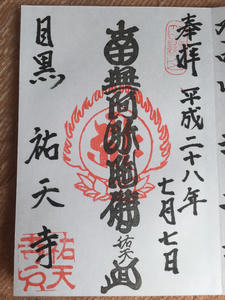 奉拝
平成二十八年
七月七日
南無阿弥陀佛
祐天
目黒 祐天寺